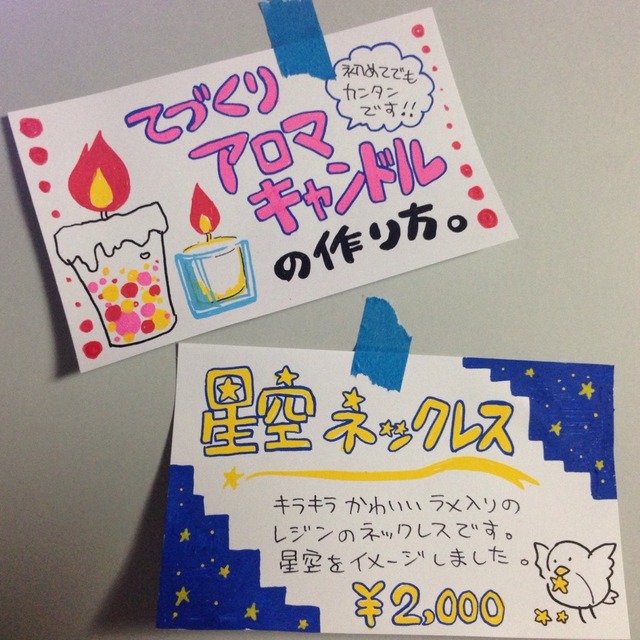 てづくり
アロマ
キャンドル
の作り方。
初めてでも
カンタン
です!!
星空ネックレス
キラキラ かわいい ラメ入りの
レジンのネックレスです。
星空をイメージしました。
¥2,000